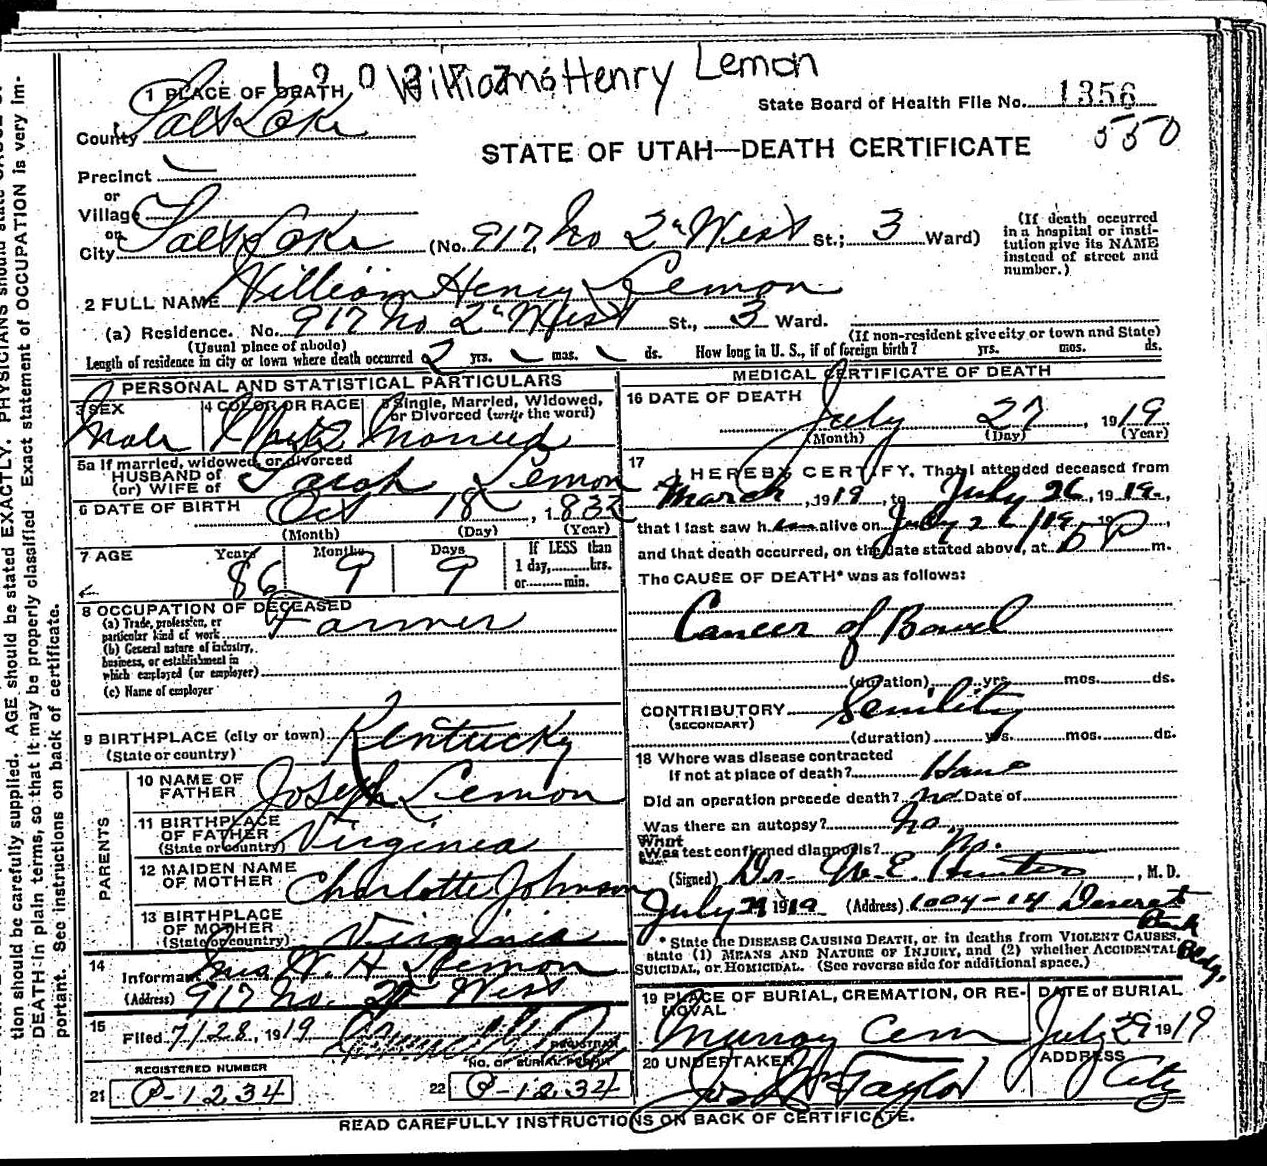 Williams Henry Lemon
1 PLACE OF DEATH
State Board of Health File No. 1356
550
County Salt Lake
STATE OF UTAH—DEATH CERTIFICATE
Precinct
or
Village
or
City Salt Lake (No. 917 No 2d West St.; 3 Ward)
(If death occurred in a hospital or institution give its NAME instead of street and number.)
2 FULL NAME William Henry Lemon
(a) Residence. No. 917 No 2d West St., 3 Ward.
(Usual place of abode) (If non-resident give city or town and State)
Length of residence in city or town where death occurred 2 yrs. mos. ds. How long in U. S., if of foreign birth? yrs. mos. ds.
PERSONAL AND STATISTICAL PARTICULARS
3 SEX 4 COLOR OR RACE 5 Single, Married, Widowed, or Divorced (write the word)
Male White Married
5a If married, widowed, or divorced
HUSBAND of
(or) WIFE of Sarah Lemon
6 DATE OF BIRTH Oct 18, 1832
(Month) (Day) (Year)
7 AGE Years Months Days If LESS than
86 9 9 1 day, hrs.
or min.
8 OCCUPATION OF DECEASED
(a) Trade, profession, or
particular kind of work Farmer
(b) General nature of industry,
business, or establishment in
which employed (or employer)
(c) Name of employer
9 BIRTHPLACE (city or town) Kentucky
(State or country)
PARENTS
10 NAME OF FATHER Joseph Lemon
11 BIRTHPLACE OF FATHER (State or country) Virginia
12 MAIDEN NAME OF MOTHER Charlotte Johnson
13 BIRTHPLACE OF MOTHER (State or country) Virginia
14 Informant Mrs W. H Lemon
(Address) 917 No. 2d West
15 Filed 7/28, 1919
REGISTRAR
REGISTERED NUMBER NO. OF BURIAL PERMIT
21 P-1234 22 P-1234
MEDICAL CERTIFICATE OF DEATH
16 DATE OF DEATH
July 27, 1919
(Month) (Day) (Year)
17 I HEREBY CERTIFY, That I attended deceased from
March, 1919, to July 26, 1919,
that I last saw him alive on July 26 1919,
and that death occurred, on the date stated above, at 5 P m.
The CAUSE OF DEATH* was as follows:
Cancer of Bowel
(duration) yrs. mos. ds.
CONTRIBUTORY Senility
(SECONDARY)
(duration) yrs. mos. ds.
18 Where was disease contracted
If not at place of death? Home
Did an operation precede death? no Date of
Was there an autopsy? No.
What
Was test confirmed diagnosis? No.
(Signed) Dr. W. E. Hunter, M. D.
July 29 1919 (Address) 1004-14 Deseret
Bank
Bldg.
* State the DISEASE CAUSING DEATH, or in deaths from VIOLENT CAUSES,
state (1) MEANS AND NATURE OF INJURY, and (2) whether ACCIDENTAL
SUICIDAL, or HOMICIDAL. (See reverse side for additional space.)
19 PLACE OF BURIAL, CREMATION, OR REMOVAL DATE of BURIAL
Murray Cem July 29 1919
20 UNDERTAKER ADDRESS
Jos Wm Taylor City
READ CAREFULLY INSTRUCTIONS ON BACK OF CERTIFICATE.
tion should be carefully supplied. AGE should be stated EXACTLY. PHYSICIANS should state
DEATH in plain terms, so that it may be properly classified. Exact statement of OCCUPATION is very im-
portant. See instructions on back of certificate.